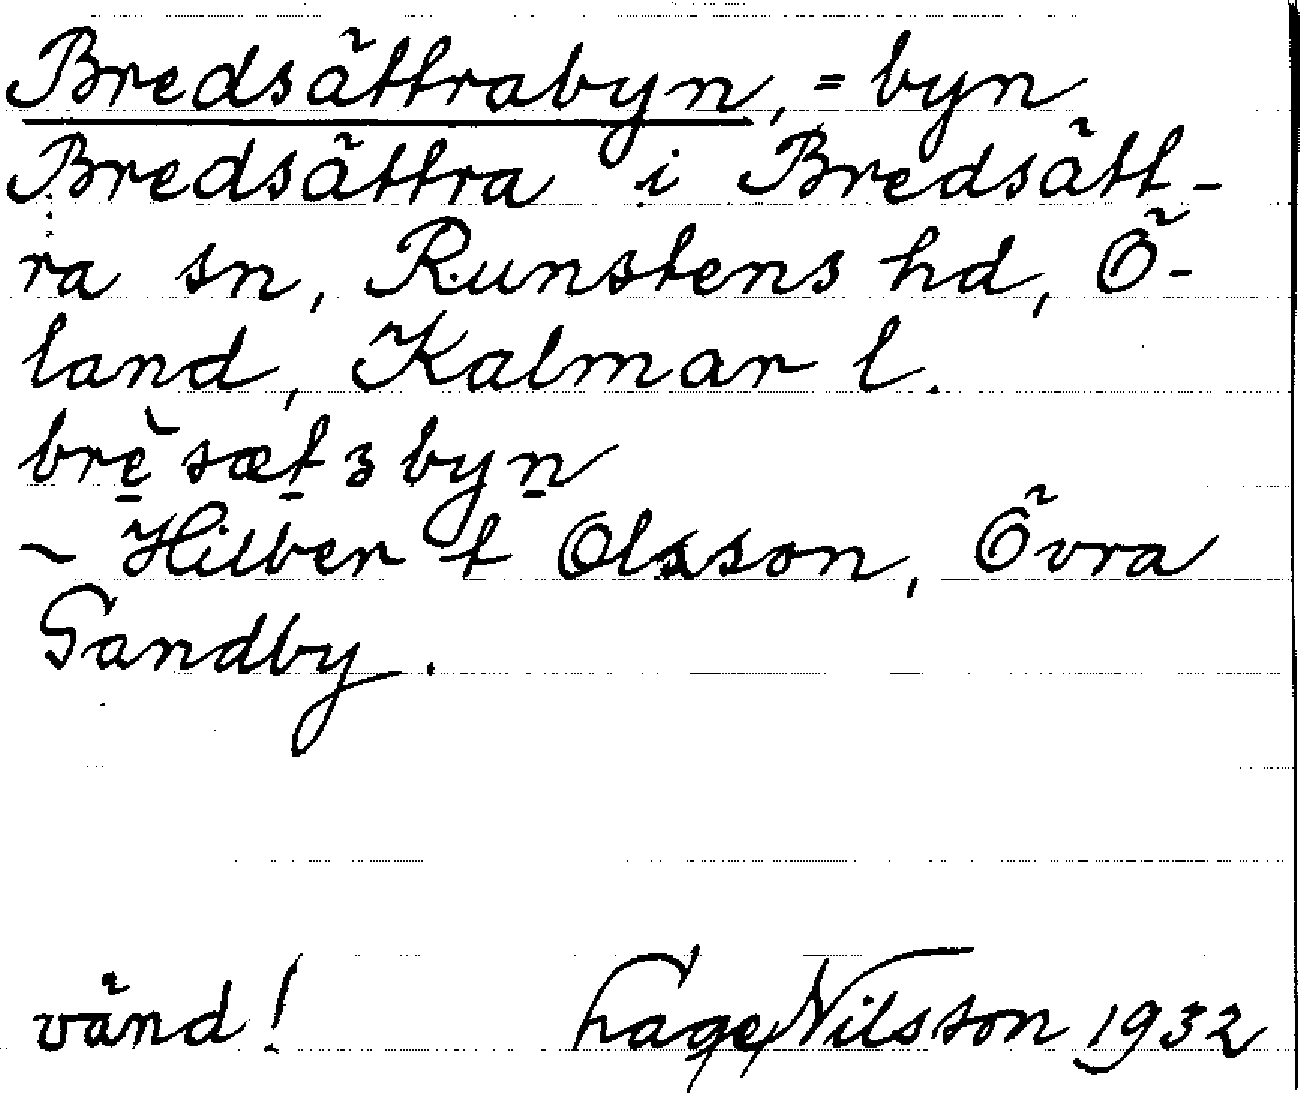 Bredsättrabyn, = byn
Bredsättra i Bredsätt-
ra sn, Runstens hd, Ö-
land, Kalmar l.
brè̱sæt̠ꜫbyn̠
~ Hilbert Olsson, Övra
Sandby.
vänd! Hage Nilsson 1932